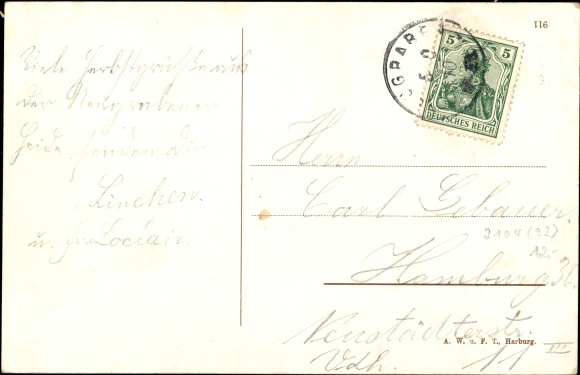 Viele Herbstgrüße aus
der Neugrabener
Heide senden
Linchen.
u.
116
5 5
DEUTSCHES REICH
Herrn
Carl Gebauer.
2104 (92)
12.-
Hamburg 36.
Neustädterstr.
11 III
Vdh.
A. W. u. F. T., Harburg.